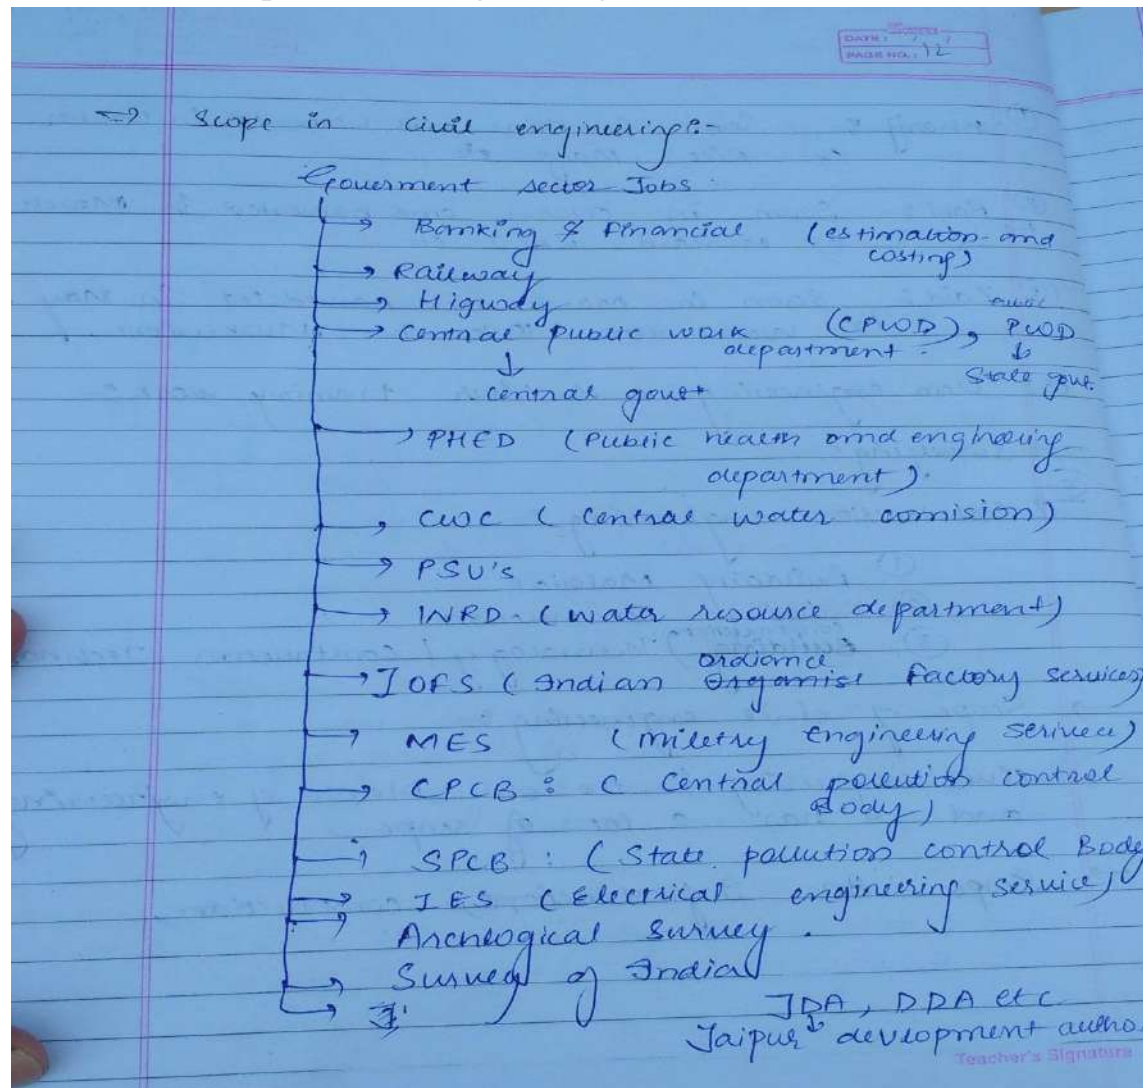 DATE: / /
PAGE NO.: 12
→ Scope in civil engineering:-
Gouerment sector Jobs
→ Banking & Financial (estimation and
costing)
→ Railway
→ Higuray
→ Central public work (CPWD), PWD
department.
↓ ↓
central govt State govt.
→ PHED (Public health and engineering
department).
→ CWC (Central water comision)
→ PSU's
→ WRD. (Water resource department)
ordiance
→ IOFS (Indian Organist Factory services)
→ MES (miletry Engineering Serivce)
→ CPCB : ( Central pollution control
Body)
→ SPCB : (State pollution control Body
→ IES (Electrical engineering service)
→ Archeogical Survey.
→ Survey of India
→
JDA, DDA etc
↓
Jaipur development autho.
Teacher's Signature